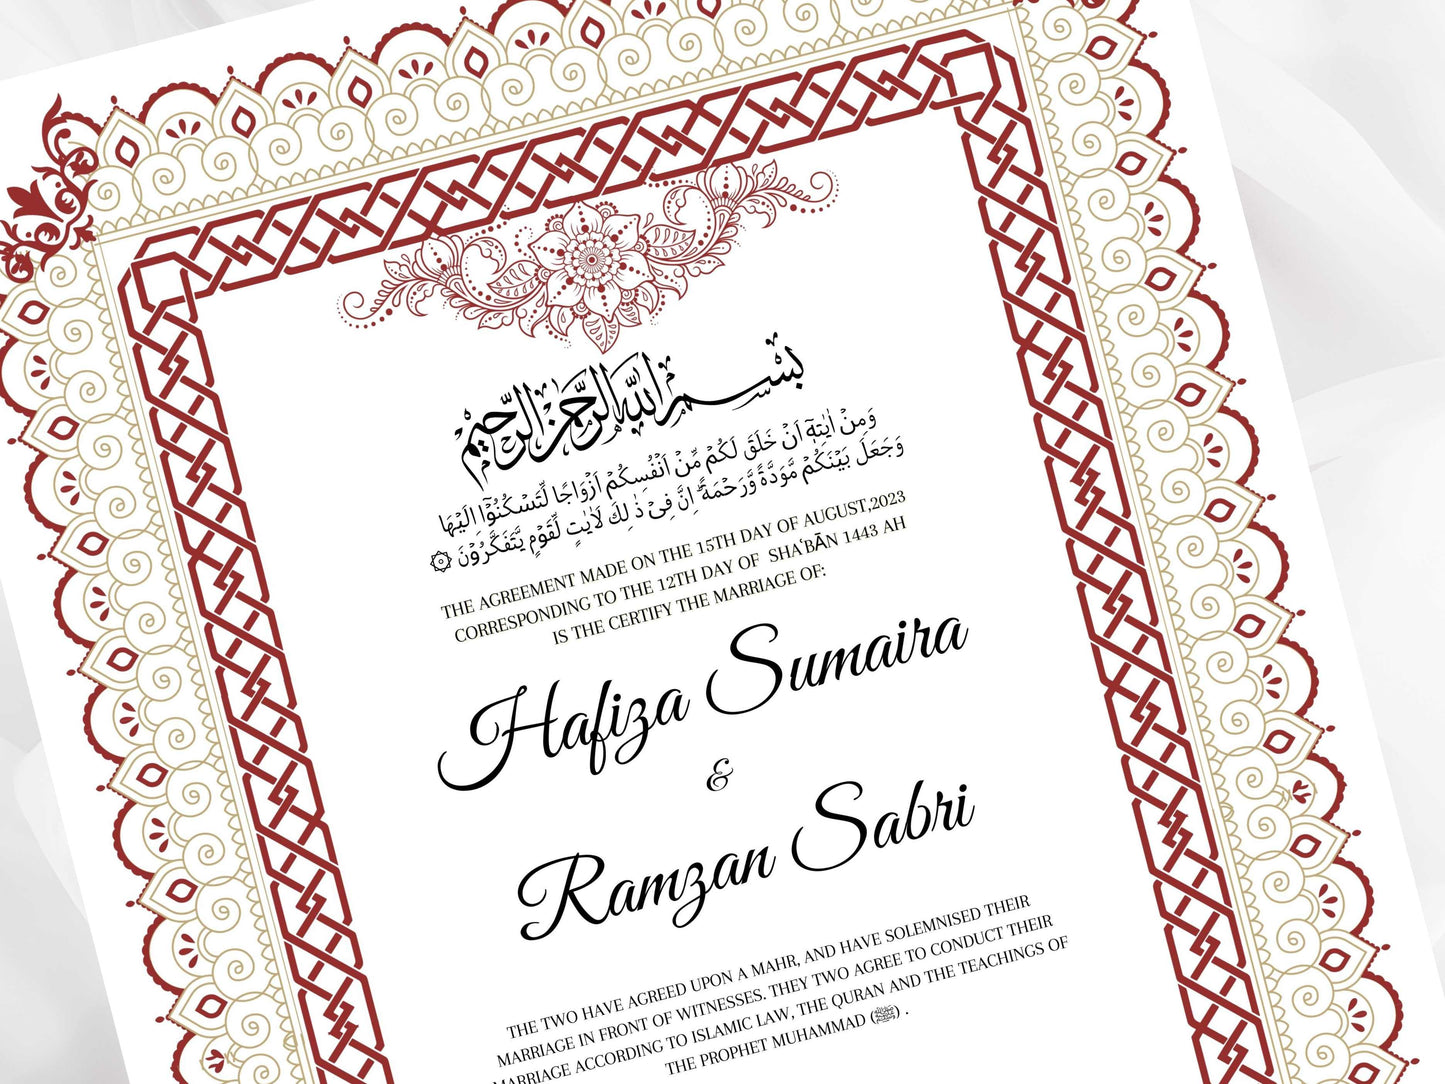 بسم الله الرحمن الرحيم
وَمِنْ اٰيٰتِهٖٓ اَنْ خَلَقَ لَكُمْ مِّنْ اَنْفُسِكُمْ اَزْوَاجًا لِّتَسْكُنُوْٓا اِلَيْهَا
وَجَعَلَ بَيْنَكُمْ مَّوَدَّةً وَّرَحْمَةً ۗاِنَّ فِيْ ذٰلِكَ لَاٰيٰتٍ لِّقَوْمٍ يَّتَفَكَّرُوْنَ ۞
THE AGREEMENT MADE ON THE 15TH DAY OF AUGUST,2023
CORRESPONDING TO THE 12TH DAY OF SHAʿBĀN 1443 AH
IS THE CERTIFY THE MARRIAGE OF:
Hafiza Sumaira
&
Ramzan Sabri
THE TWO HAVE AGREED UPON A MAHR, AND HAVE SOLEMNISED THEIR
MARRIAGE IN FRONT OF WITNESSES. THEY TWO AGREE TO CONDUCT THEIR
MARRIAGE ACCORDING TO ISLAMIC LAW, THE QURAN AND THE TEACHINGS OF
THE PROPHET MUHAMMAD (ﷺ) .